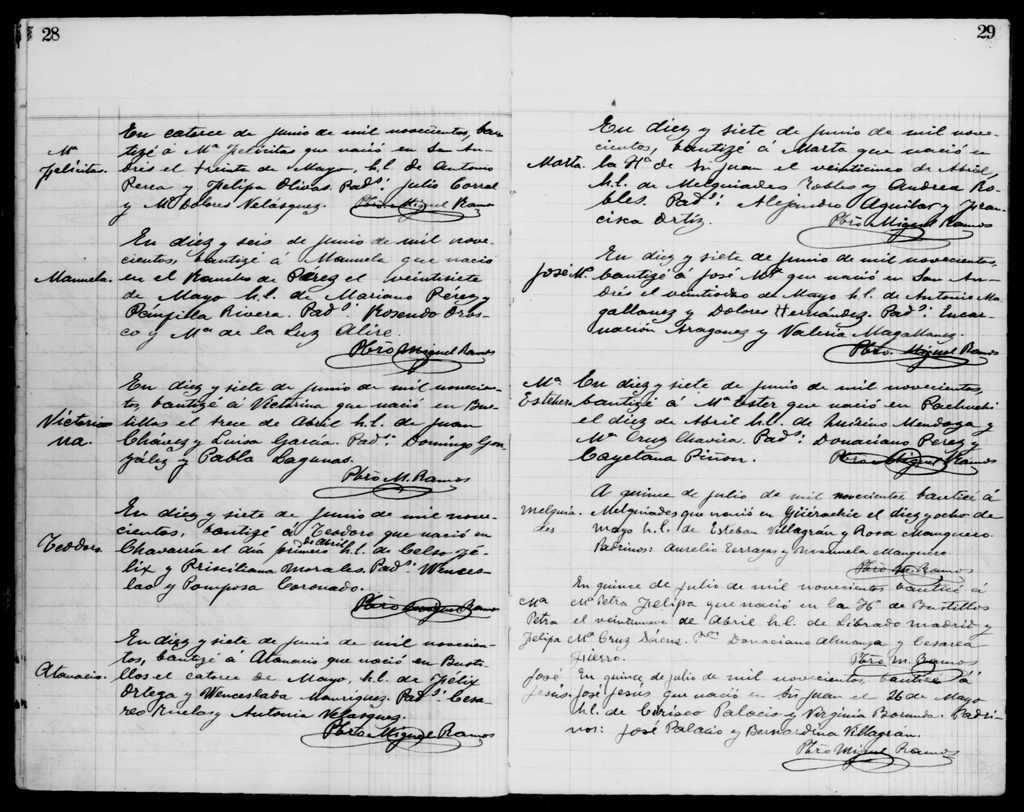 28
Mª Felícitas.
En catorce de junio de mil novecientos, bau-
tizé á Mª Felícitas que nació en San An-
drés el treinta de Mayo, h.l. de Antonio
Perea y Felipa Olivas. Pads: Julio Corral
y Mª Dolores Velásquez. Pbro Miguel Ramos
Manuela.
En diez y seis de junio de mil nove-
cientos, bautizé á Manuela que nació
en el Rancho de Pérez el veintisiete
de Mayo h.l. de Mariano Pérez y
Rivera. Pads: Rosendo Oros-
co y Mª de la Luz Alire.
Pbro Miguel Ramos
Victoria
na.
En diez y siete de junio de mil novecien-
tos, bautizé á Victorina que nació en Bus-
tillos el trece de Abril h.l. de Juan
Chávez y Luisa García. Pads: Domingo Gon-
zález y Pabla Lagunas.
Pbro M. Ramos
Teodoro.
En diez y siete de junio de mil nove-
cientos, bautizé á Teodoro que nació en
Chavarría el día primero de Abril h.l. de Celso Fé-
lix y Prisciliana Morales. Pads: Wences-
lao y Pomposa Coronado.
Pbro Miguel Ramos
Atanacio.
En diez y siete de junio de mil novecien-
tos, bautizé á Atanacio que nació en Busti-
llos el catorce de Mayo, h.l. de Félix
Ortega y Wenceslaba Manriquez. Pads: Cesa-
reo Ruelas y Antonia Velasquez.
Pbro Miguel Ramos
29
Marta.
En diez y siete de junio de mil nove-
cientos, bautizé á Marta que nació en
la Hª de Sn Juan el veintinueve de Abril,
h.l. de Melquiades Robles y Andrea Ro-
bles. Pads: Alejandro Aguilar y Fran-
cisca Ortiz.
Pbro Miguel Ramos
José Mª
En diez y siete de junio de mil novecientos,
bautizé á José Mª que nació en San An-
drés el veintidos de Mayo h.l. de Antonio Ma
gallanez y Dolores Hernández. Pads: Encar-
nación Aragonez y Valeria Magallanez.
Pbro. Miguel Ramos
Mª
Esther
En diez y siete de junio de mil novecientos,
bautizé á Mª Ester que nació en Pachuchi
el diez de Abril h.l. de Mendoza y
Mª Cruz Chavira. Pads: Donaciano Perez y
Cayetana Piñon. Pbro Miguel Ramos
Melquia-
des
A quince de julio de mil novecientos bauticé á
Melquiades que nació en Güérachic el diez y ocho de
mayo h.l. de Esteban Villagrán y Rosa Manquero
Padrinos: Aurelio Terrazas y Manuela Manquero
Pbro M. Ramos
Mª
Petra
Felipa
En quince de julio de mil novecientos bauticé á
Mª Petra Felipa que nació en la Hª de Bustillos
el veintinueve de Abril h.l. de Librado Madrid y
Mª Cruz Sáenz. Pnos Donaciano Almanza y Cesarea
Fierro.
Pbro M. Ramos
José
Jesús.
En quince de julio de mil novecientos bauticé á
José Jesús que nació en Sn Juan el 26 de Mayo
h.l. de Ciriaco Palacio y Virginia Borunda. Padri-
nos: José Palacio y Bernardina Villagrán.
Pbro Miguel Ramos